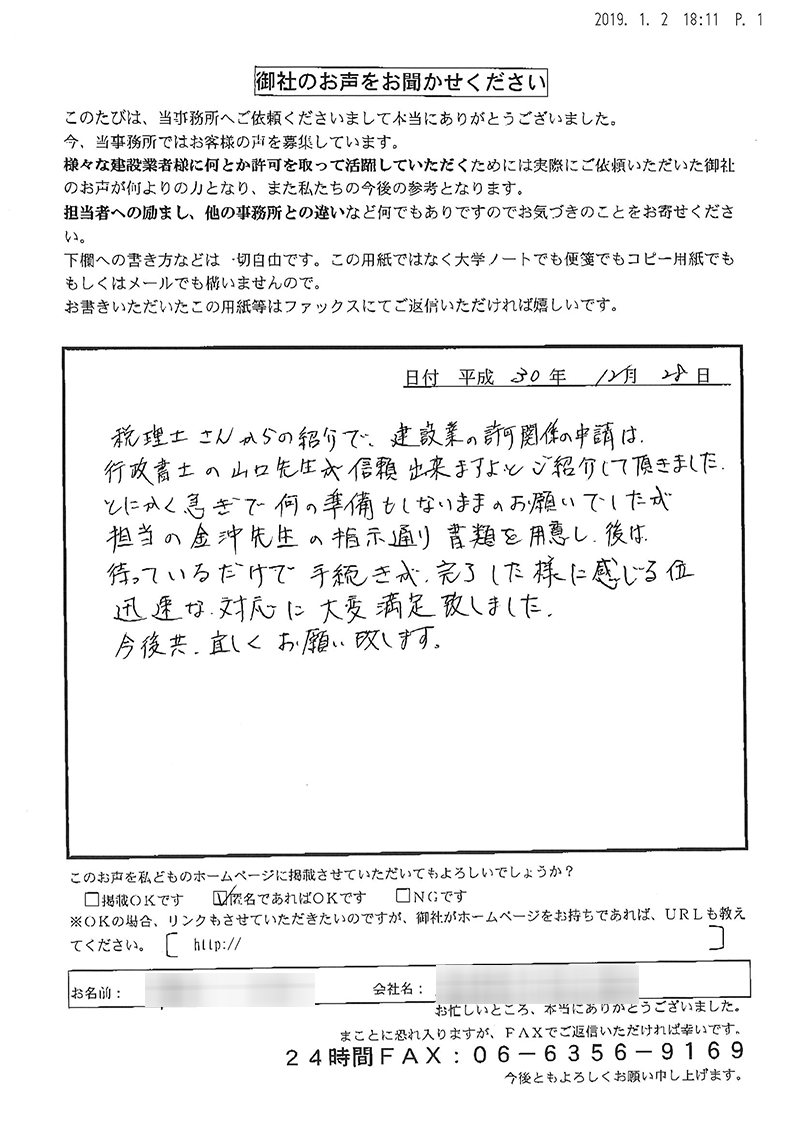 2019. 1. 2 18:11 P. 1
御社のお声をお聞かせください
このたびは、当事務所へご依頼くださいまして本当にありがとうございました。
今、当事務所ではお客様の声を募集しています。
様々な建設業者様に何とか許可を取って活躍していただくためには実際にご依頼いただいた御社
のお声が何よりの力となり、また私たちの今後の参考となります。
担当者への励まし、他の事務所との違いなど何でもありですのでお気づきのことをお寄せくださ
い。
下欄への書き方などは一切自由です。この用紙ではなく大学ノートでも便箋でもコピー用紙でも
もしくはメールでも構いませんので。
お書きいただいたこの用紙等はファックスにてご返信いただければ嬉しいです。
日付 平成 30 年 12月 28 日
税理士さんからの紹介で、建設業の許可関係の申請は、
行政書士の山口先生が信頼出来ますよとご紹介して頂きました.
とにかく急ぎで何の準備もしないままのお願いでしたが
担当の金沖先生の指示通り書類を用意し、後は、
待っているだけで手続きが、完了した様に感じる位
迅速な、対応に大変満足致しました.
今後共、宜しくお願い致します。
このお声を私どものホームページに掲載させていただいてもよろしいでしょうか?
□掲載OKです ☑匿名であればOKです □NGです
※OKの場合、リンクもさせていただきたいのですが、御社がホームページをお持ちであれば、URLも教え
てください。 [ http:// ]
お名前: 会社名:
お忙しいところ、本当にありがとうございました。
まことに恐れ入りますが、FAXでご返信いただければ幸いです。
24時間FAX:06-6356-9169
今後ともよろしくお願い申し上げます。